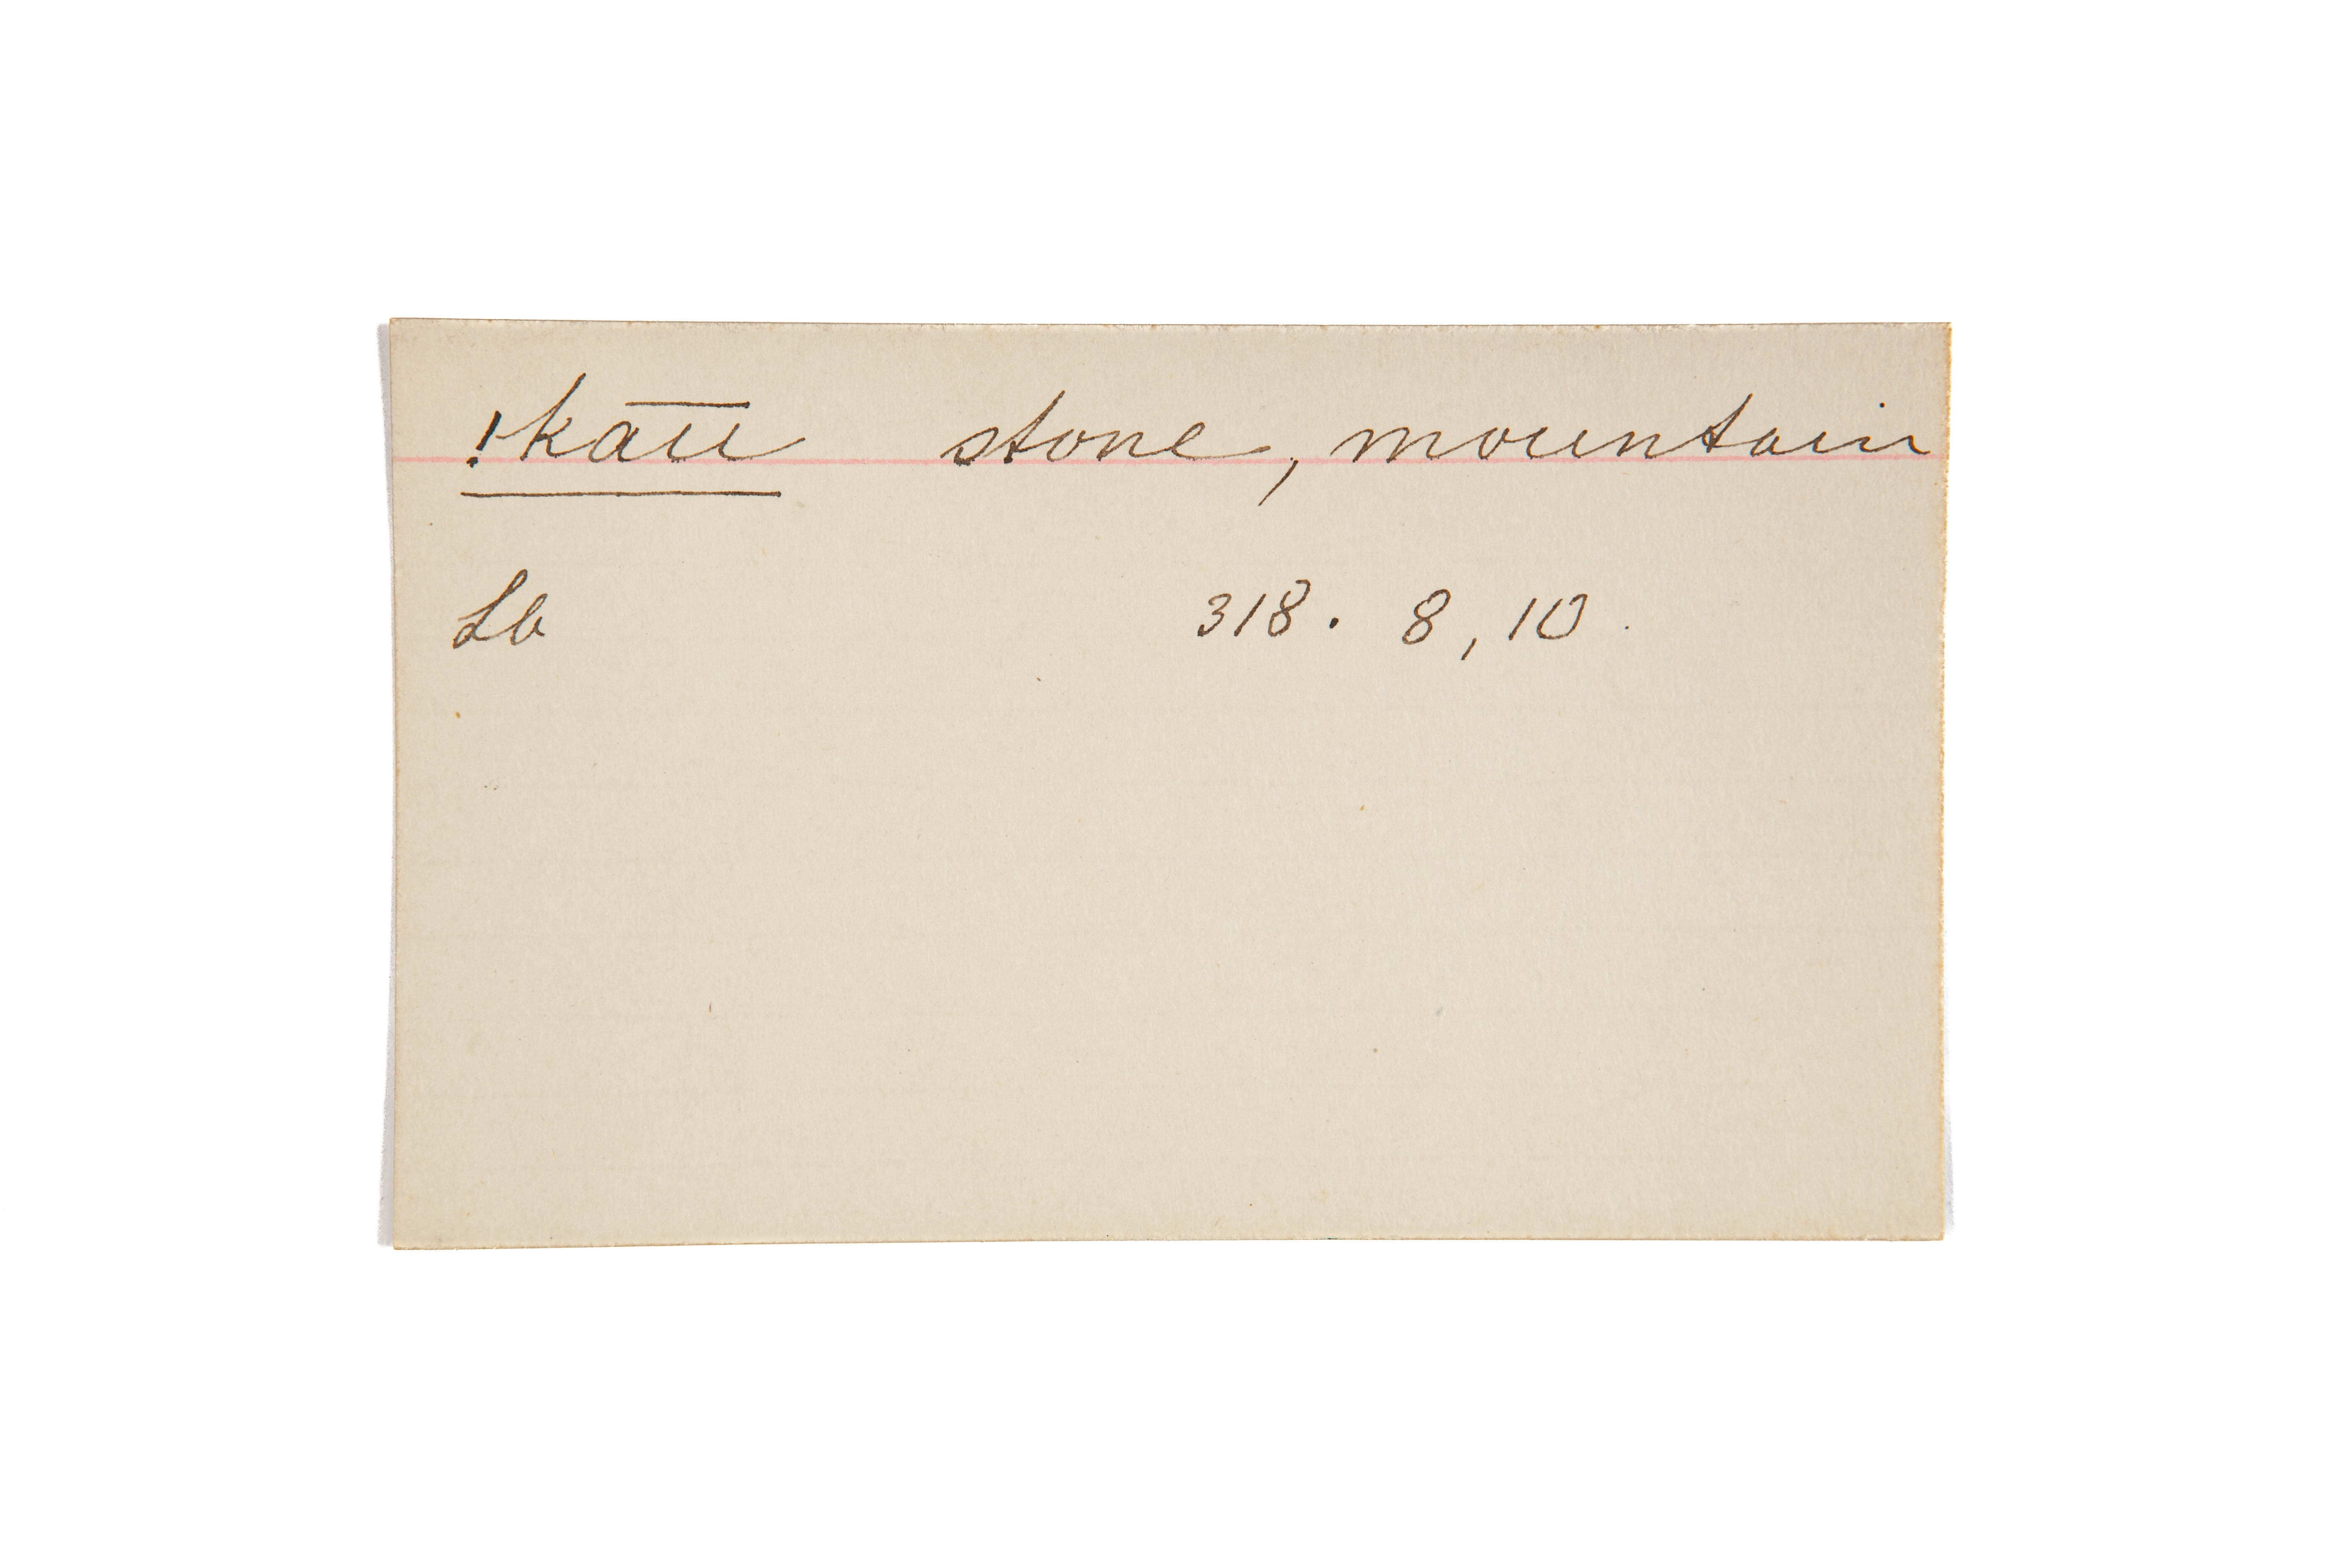 !ka͞u stone, mountain
Lb 318. 8, 10.